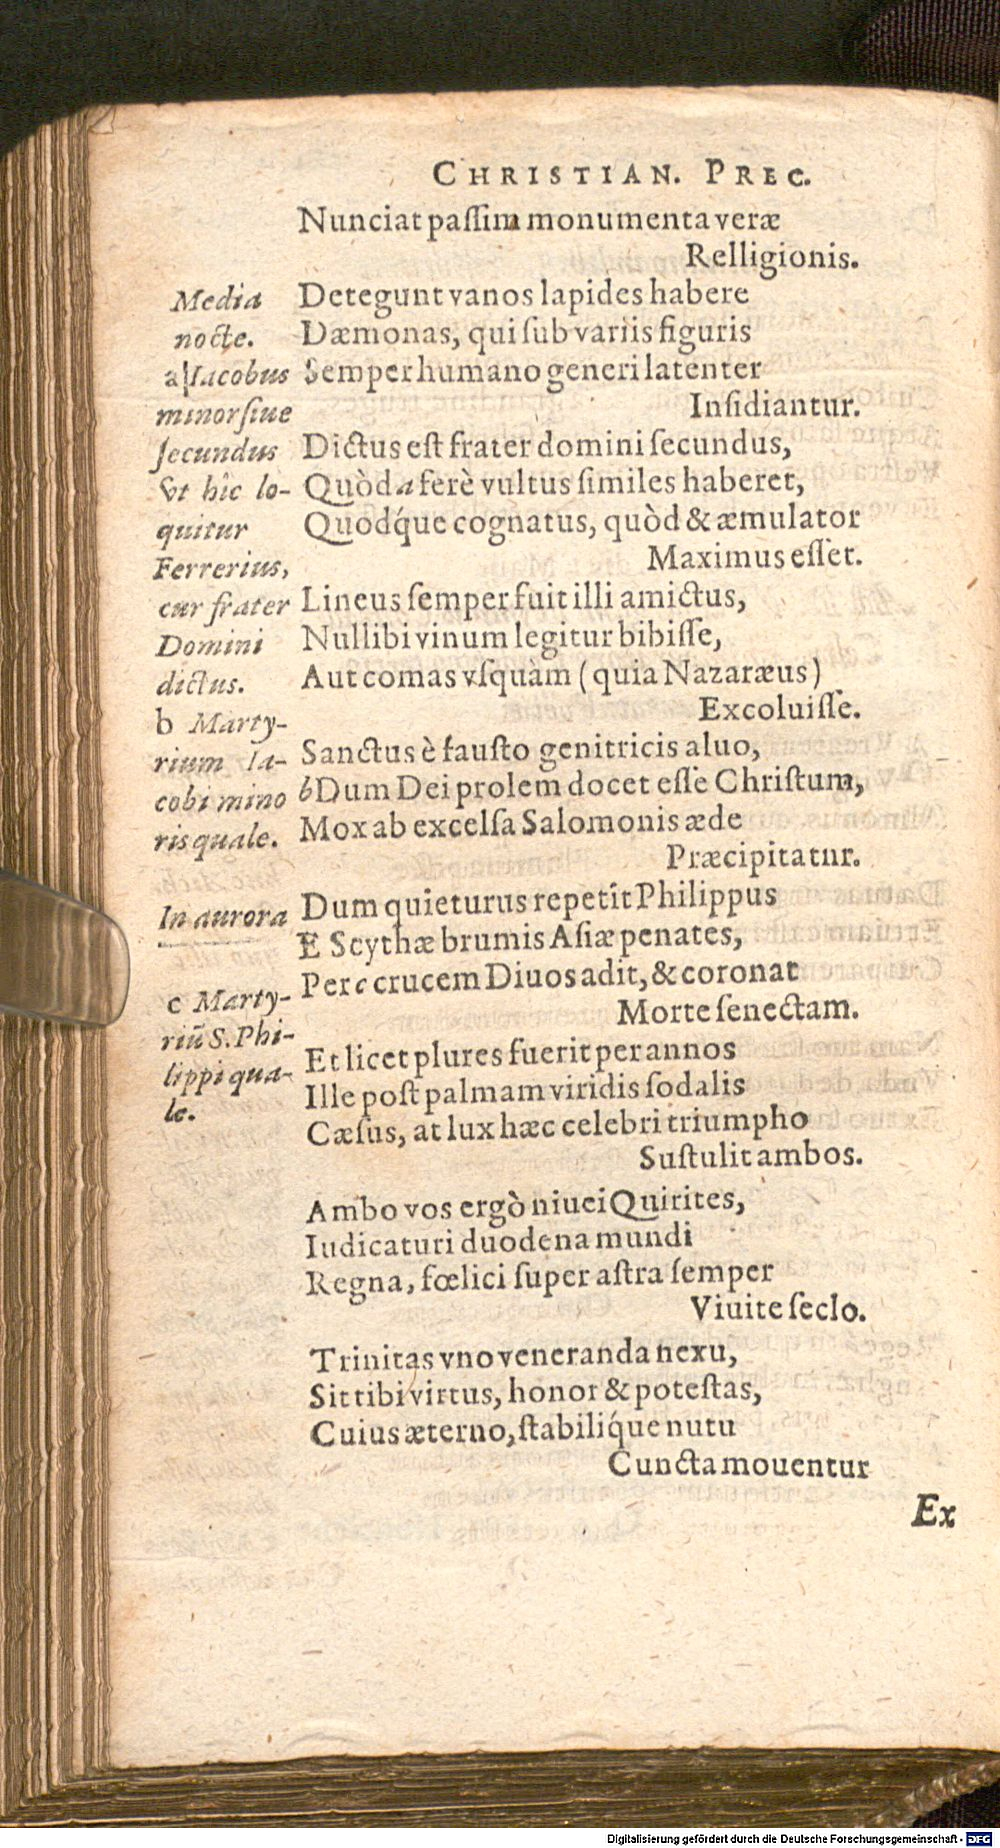 CHRISTIAN. PREC.
Nunciat paſſim monumenta veræ
Relligionis.
Detegunt vanos lapides habere
Dæmonas, qui ſub variis figuris
Semper humano generi latenter
Inſidiantur.
Dictus eſt frater domini ſecundus,
Quòd a ferè vultus ſimiles haberet,
Quodq́ue cognatus, quòd & æmulator
Maximus eſſet.
Lineus ſemper fuit illi amictus,
Nullibi vinum legitur bibiſſe,
Aut comas vſquàm (quia Nazaræus)
Excoluiſſe.
Sanctus è fauſto genitricis aluo,
b Dum Dei prolem docet eſſe Chriſtum,
Mox ab excelſa Salomonis æde
Præcipitatur.
Dum quieturus repetit Philippus
E Scythæ brumis Aſiæ penates,
Per c crucem Diuos adit, & coronat
Morte ſenectam.
Et licet plures fuerit per annos
Ille poſt palmam viridis ſodalis
Cæſus, at lux hæc celebri triumpho
Suſtulit ambos.
Ambo vos ergò niuei Quirites,
Iudicaturi duodena mundi
Regna, fœlici ſuper aſtra ſemper
Viuite ſeclo.
Trinitas vno veneranda nexu,
Sit tibi virtus, honor & poteſtas,
Cuius æterno, ſtabiliq́ue nutu
Cuncta mouentur
Ex
Media
nocte.
a Iacobus
minor ſiue
ſecundus
Vt hîc lo-
quitur
Ferrerius,
cur frater
Domini
dictus.
b Marty-
rium Ia-
cobi mino
ris quale.
In aurora
c Marty-
riũ S. Phi-
lippi qua-
le.
Digitalisierung gefördert durch die Deutsche Forschungsgemeinschaft - DFG